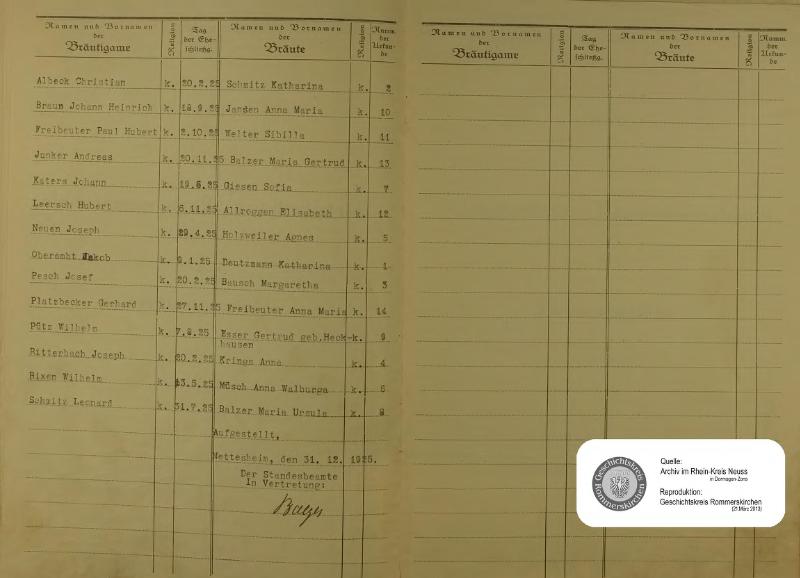 Namen und Vornamen der Bräutigame Religion Tag der Ehe- schließg. Namen und Vornamen der Bräute Religion Numm. der Urkun- de
Albeck Christian k. 20.2.25 Schmitz Katharina k. 2
Braun Johann Heinrich k. 18.9.25 Jansen Anna Maria k. 10
Freibeuter Paul Hubert k. 2.10.25 Welter Sibilla k. 11
Junker Andreas k. 20.11.25 Balzer Maria Gertrud k. 13
Katers Johann k. 19.6.25 Giesen Sofia k. 7
Leersch Hubert k. 6.11.25 Allroggen Elisabeth k. 12
Neuen Joseph k. 29.4.25 Holzweiler Agnes k. 5
Oberembt Jakob k. 9.1.25 Deutzmann Katharina k. 1
Pesch Josef k. 20.2.25 Bausch Margaretha k. 3
Platzbecker Gerhard k. 27.11.25 Freibeuter Anna Maria k. 14
Pütz Wilhelm k. 7.8.25 Esser Gertrud geb. Heck- k. 9
hausen
Ritterbach Joseph k. 20.2.25 Krings Anna k. 4
Rixen Wilhelm k. 13.5.25 Müsch Anna Walburga k. 6
Schmitz Leonard k. 31.7.25 Balzer Maria Ursula k. 8
Aufgestellt,
Nettesheim, den 31. 12. 1925.
Der Standesbeamte
In Vertretung:
Namen und Vornamen der Bräutigame Religion Tag der Ehe- schließg. Namen und Vornamen der Bräute Religion Numm. der Urkun- de
Geschichtskreis
Rommerskirchen
Quelle:
Archiv im Rhein-Kreis Neuss
in Dormagen-Zons
Reproduktion:
Geschichtskreis Rommerskirchen
(21.März 2013)